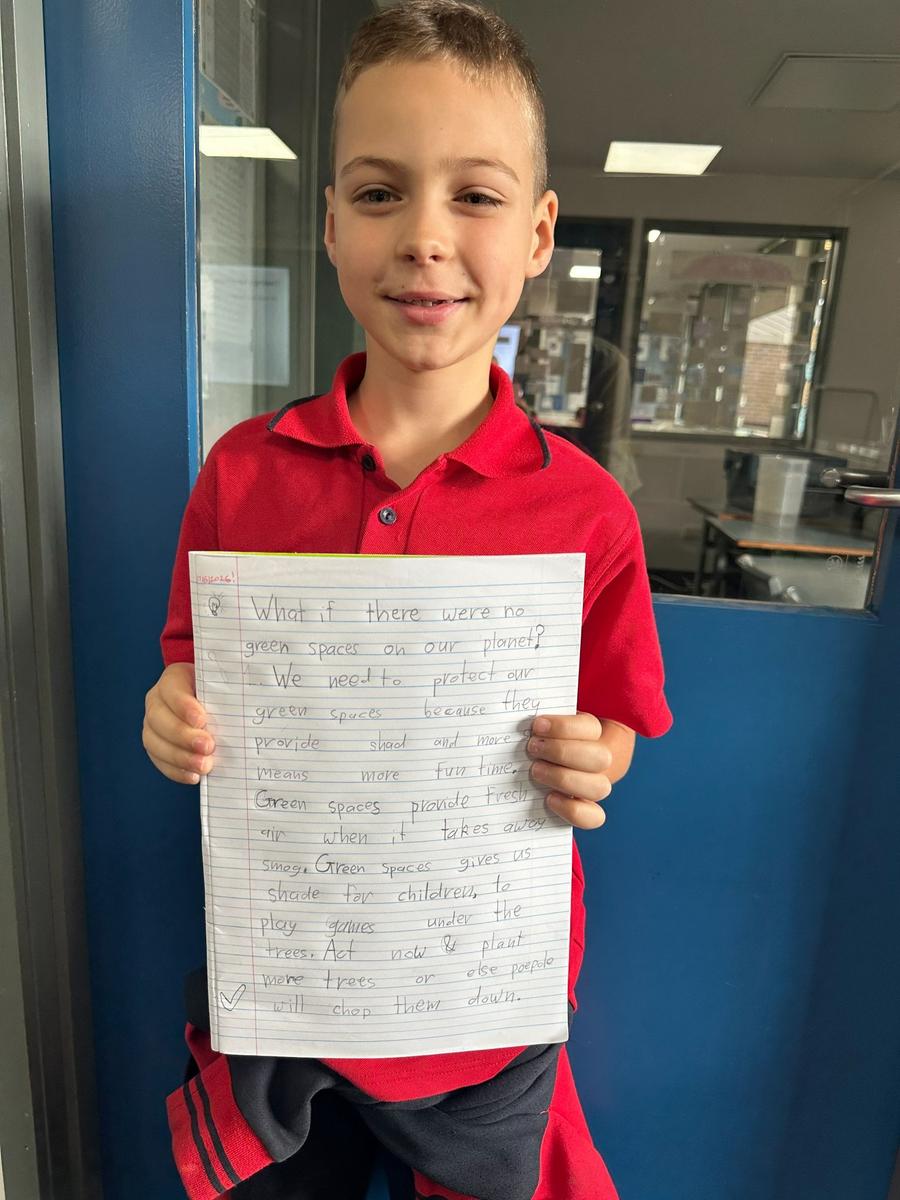 What if there were no
green spaces on our planet?
We need to protect our
green spaces because they
provide shad and more
means more fun time.
Green spaces provide fresh
air when it takes away
smog. Green spaces gives us
shade for children, to
play games under the
trees. Act now & plant
more trees or else poepole
will chop them down.